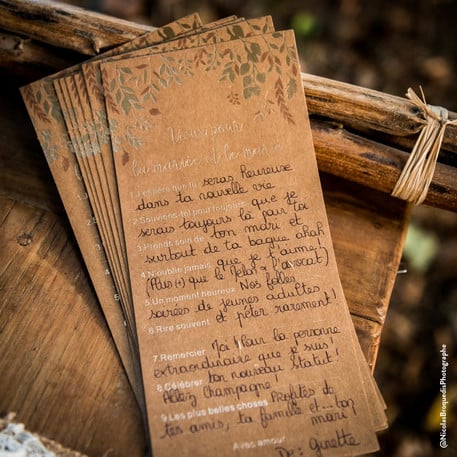 Vœux pour
la mariée et le marié
1.J'espère que tu seras heureuse
dans ta nouvelle vie
2.Souviens-toi pour toujours que je
serais toujours là pour toi
3.Prends soin de ton mari et
surtout de ta bague ahah
4.N'oublie jamais que je t'aime!
(Plus (+) que le Pelat à l'avocat)
5.Un moment heureux Nos folles
soirées de jeunes adultes
6.Rire souvent et péter rarement!
7.Remercier Moi! Pour la personne
extraordinaire que je suis!
8.Célébrer ton nouveau statut!
Allez Champagne!
9.Les plus belles choses Profites de
tes amis, ta famille et...ton
mari
Avec amour
De: Ginette
@NicolasBroquedisPhotographe